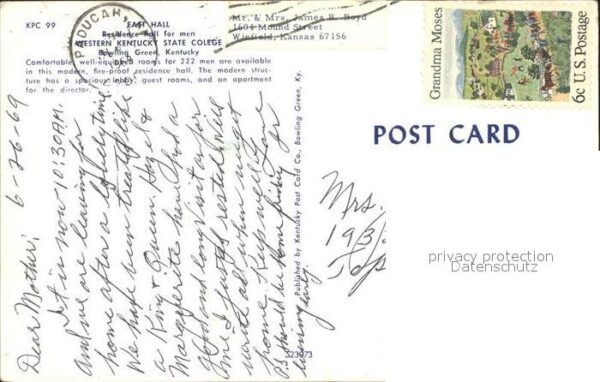 KPC 99
EAST HALL
Residence hall for men
WESTERN KENTUCKY STATE COLEGE
Bowling Green, Kentucky
Comfortable well-equipped rooms for 222 men are available
in this modern, fire-proof residence hall. The modern struc-
ture has a spacious lobby, guest rooms, and an apartment
for the director.
PADUCAH
Mr. & Mrs. James R. Boyd
1604 Mound Street
Winfield, Kansas 67156
Grandma Moses
6c U.S. Postage
POST CARD
6-26-69
Dear Mother:
It is now 10:30 A.M.
and we are leaving for
home after a lovely time.
We have been treated like
a King & Queen. Hazel &
Marguerite have had a
good and long visit or for
me I just rested. Will
write all when we get
home. Keep well. Love
P.S. should be home Friday
evening early.
Published by Kentucky Post Card Co., Bowling Green, Ky.
S23073
Mrs.
193
Top
privacy protection
Datenschutz